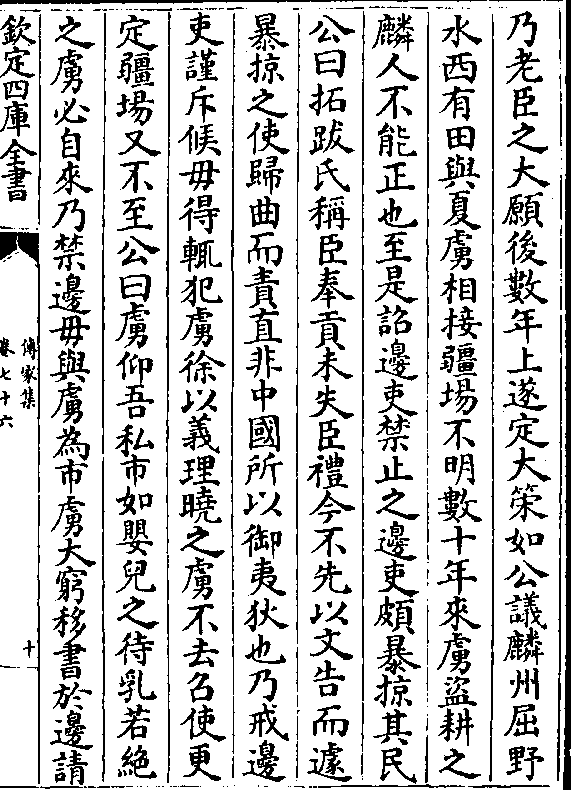 乃老臣之大願後數年上遂定大策如公議麟州屈野
水西有田與夏虜相接疆場不明數十年來虜盜耕之
麟人不能正也至是詔邊吏禁止之邊吏頗暴掠其民
公曰拓跋氏稱臣奉貢未失臣禮今不先以文告而遽
暴掠之使歸曲而責直非中國所以御夷狄也乃戒邊
吏謹斥候毋得輒犯虜徐以義理曉之虜不去召使更
定疆場又不至公曰虜仰吾私市如嬰兒之待乳若絶
之虜必自來乃禁邊毋與虜為市虜大窮移書於邊請
欽定四庫全書
傳家集
卷七十六
十